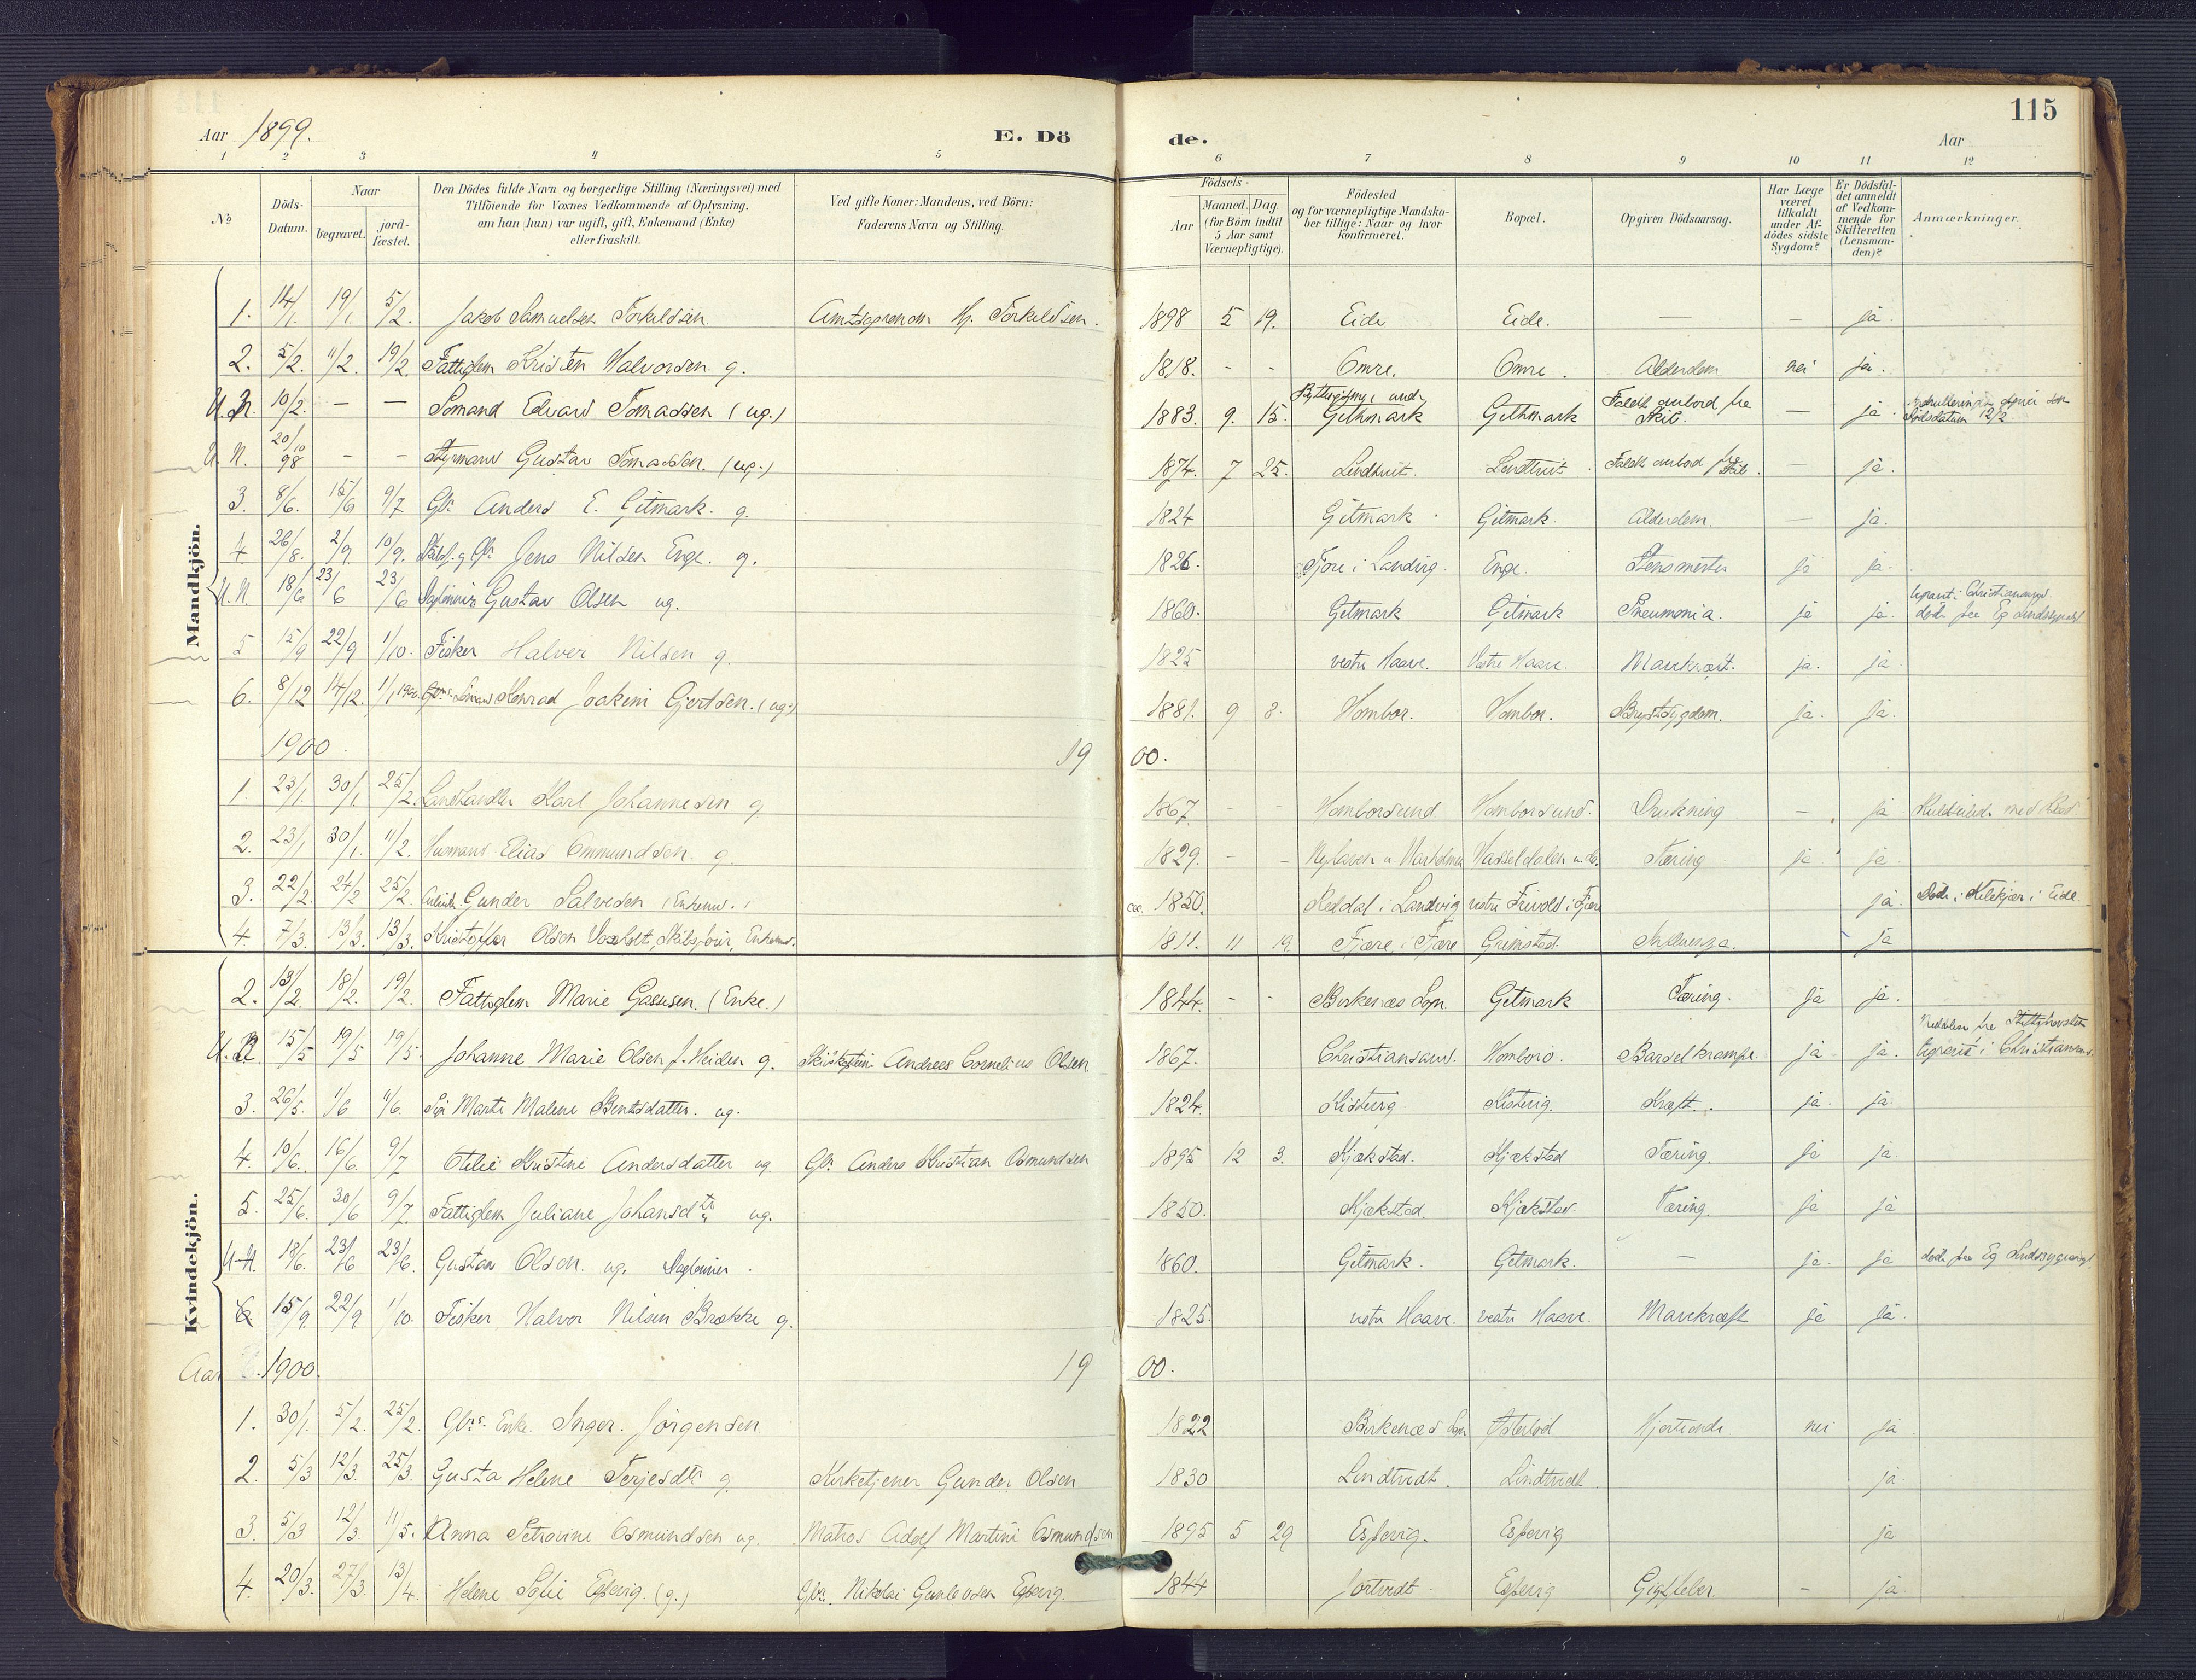 115
Aar 1899. E. Dö de. Aar
1 2 3 4 5 6 7 8 9 10 11 12
No
Döds-Datum.
Naar
begravet.
jord-fæstet.
Den Dödes fulde Navn og borgerlige Stilling (Næringsvei) med
Tilföiende for Voxnes Vedkommende af Oplysning,
om han (hun) var ugift, gift, Enkemand (Enke)
eller fraskilt.
Ved gifte Koner: Mandens, ved Börn:
Faderens Navn og Stilling.
Födsels-
Aar
Maaned. Dag.
(for Börn indtil
5 Aar samt
Værnepligtige).
Födested
og for værnepligtige Mandska-
ber tillige: Naar og hvor
konfirmeret.
Bopæl.
Opgiven Dödsaarsag.
Har Læge
været
tilkaldt
under Af-
dödes sidste
Sygdom?
Er Dödsfal-
det anmeldt
af Vedkom-
mende for
Skifteretten
(Lensman-
den)?
Anmærkninger.
Mandkjön.
1. 14/1. 19/1. 5/2. Jakob Samuelsen Torkildsen. Hj. Torkildsen. 1898 5 19. Eide Eide. — — ja.
2. 5/2. 11/2. 19/2. Fattiglem Kristen Halvorsen. g. 1818. - - Omre. Omre. Alderdom nei ja.
U.N. 10/2. — — Sömand Edvard Tomassen (ug.) 1883. 9. 15. Githmark Githmark Faldt ombord fra Skib. — ja. Dödsdatum 12/2
U.N. 20/10 98 — — Styrmand Gustav Tomassen. (ug.) 1874. 7 25. Lindtveit. Lindtveit. Faldt ombord fra Skib. — ja.
3. 8/6. 15/6 9/7 Gbr. Anders E. Gitmark. g. 1824 Gitmark Gitmark. Alderdom. — ja.
4 26/8. 2/9. 10/9. Jens Nilsen Enge. g. 1826. Fjære i Landvig. Enge. ja ja.
U.N. 18/6 23/6 23/6 Gustav Olsen ug. 1860. Gitmark Gitmark Pneumonia. ja ja. död fra Eg Sindssygeasyl
5 15/9 22/9 1/10. Fisker Halvor Nilsen g. 1825 vestre Haave. Vestre Haave. Mavekræft. ja. ja
6. 8/12 14/12. 1/1 1900. Konrad Joakim Gjertsen. (ug.) 1881. 9 8. Hombor. Hombor. Brystsygdom. ja. ja.
1900. 19 00.
1. 23/1. 30/1 25/2. Landhandler Karl Johannesen g 1867. - - Homborsund. Homborsund. Drukning — ja
2. 23/1 30/1. 11/2. Husmand Elias Ommundsen. g. 1829. - - Vasseldalen Tæring ja ja
3. 22/2. 24/2 25/2. Gunder Salvesen (Enkem.) 1850. Reddal i Landvig vestre Frivold i Fjære ja. Död i Kilekjær i Eide
4. 7/3. 13/3. 13/3. Kristoffer Olsen Voxholt, Skibsförer, Enkem. 1811. 11 19 Fjære, i Fjære Grimstad. Influenza. ja
Kvindekjön.
2. 13/2. 18/2. 19/2. Fattiglem Marie (Enke.) 1844. - - Birkenæs Sogn. Gitmark Tæring. ja ja.
U.N. 15/5 19/5 19/5. Johanne Marie Olsen f. Heiden g. Andreas Cornelius Olsen 1867. Christianssand. Hombor. Barselkrampe ja ja. i Christianssand.
3. 26/5. 1/6 11/6. Marte Malene Bentsdatter. ug. 1824. Kistvig. Kistvig. Kræft. ja. ja.
4. 10/6. 16/6. 9/7 Otilie Kristine Andersdatter ug Gbr. Anders Kristian Osmundsen 1895 12 3. Kjækstad. Kjækstad Tæring. ja ja
5. 25/6. 30/6 9/7. Fattiglem Juliane Johansdtr ug. 1850. Kjækstad. Kjækstad. Tæring. ja ja
U.N. 18/6. 23/6 23/6. Gustav Olsen. ug. Daglönner. 1860. Gitmark. Gitmark. — ja. ja död fra Eg Sindssygeasyl.
6 15/9 22/9 1/10. Fisker Halvor Nilsen Brække g. 1825. vestre Haave. vestre Haave. Mavekræft ja ja.
Aar 1900. 19 00.
1. 30/1. 5/2. 25/2. Gbrs. Enke. Inger. Jörgensen 1822 Birkenæs Sogn nei ja
2. 5/3 12/3. 25/3. Gusta Helene Terjesdtr g. Kirketjener Gunder Olsen 1830 Lindtvedt. Lindtvedt. ja.
3. 5/3 12/3. 11/5. Anna Petrovine Osmundsen ug. Matros Adolf Martin Osmundsen 1895 5 29 Espevig. Espevig ja
4. 20/3. 27/3. 13/4. Helene Sofie Espevig. (g.) Gbr. Nikolai Gunlevsen Espevig. 1844 Jortvedt Espevig Gigtfeber. — ja